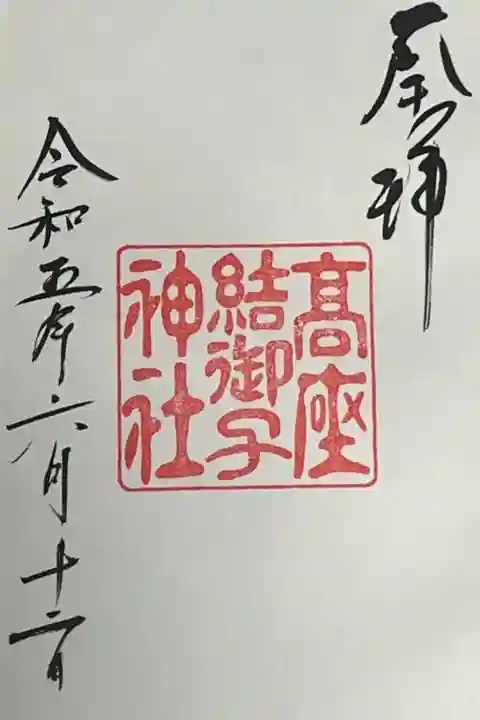 奉拝
高座
結御子
神社
令和五年六月十二日